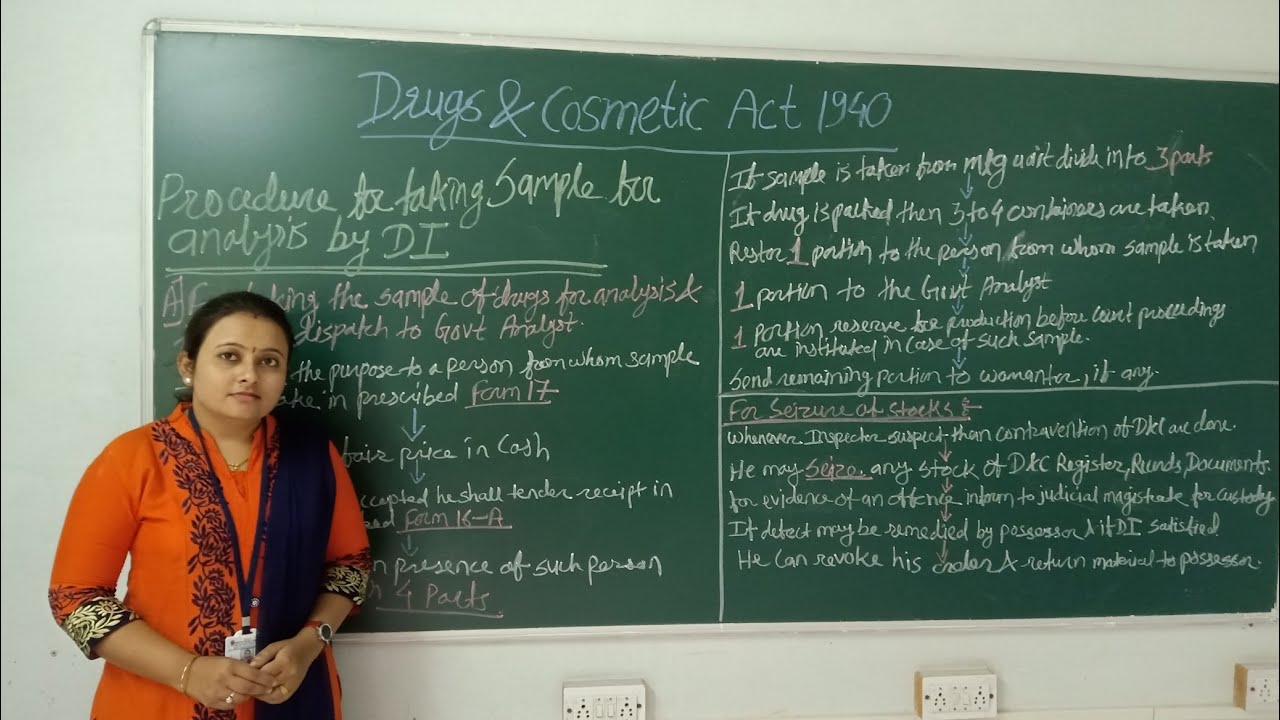 Drugs & Cosmetic Act 1940
Procedure for taking Sample for
analysis by DI
A) taking the sample of drugs for analysis &
dispatch to Govt Analyst.
the purpose to a person from whom sample
in prescribed Form 17
fair price in Cash
he shall tender receipt in
Form 16-A
in presence of such person
4 Parts.
If sample is taken from mfg unit divide into 3 parts
If drug is packed then 3 to 4 containers are taken.
Restor 1 portion to the person from whom sample is taken
1 portion to the Govt Analyst
1 Portion reserve for production before court proceedings
are instituted in case of such sample.
Send remaining portion to warrantor, if any.
For Seizure of stocks :-
Whenever Inspector suspect than contravention of D&C are done.
He may Seize. any stock of D&C Register, Records, Documents.
for evidence of an offence inform to judicial magistrate for custody
If defect may be remedied by possessor & if DI satisfied.
He Can revoke his order & return material to possessor.